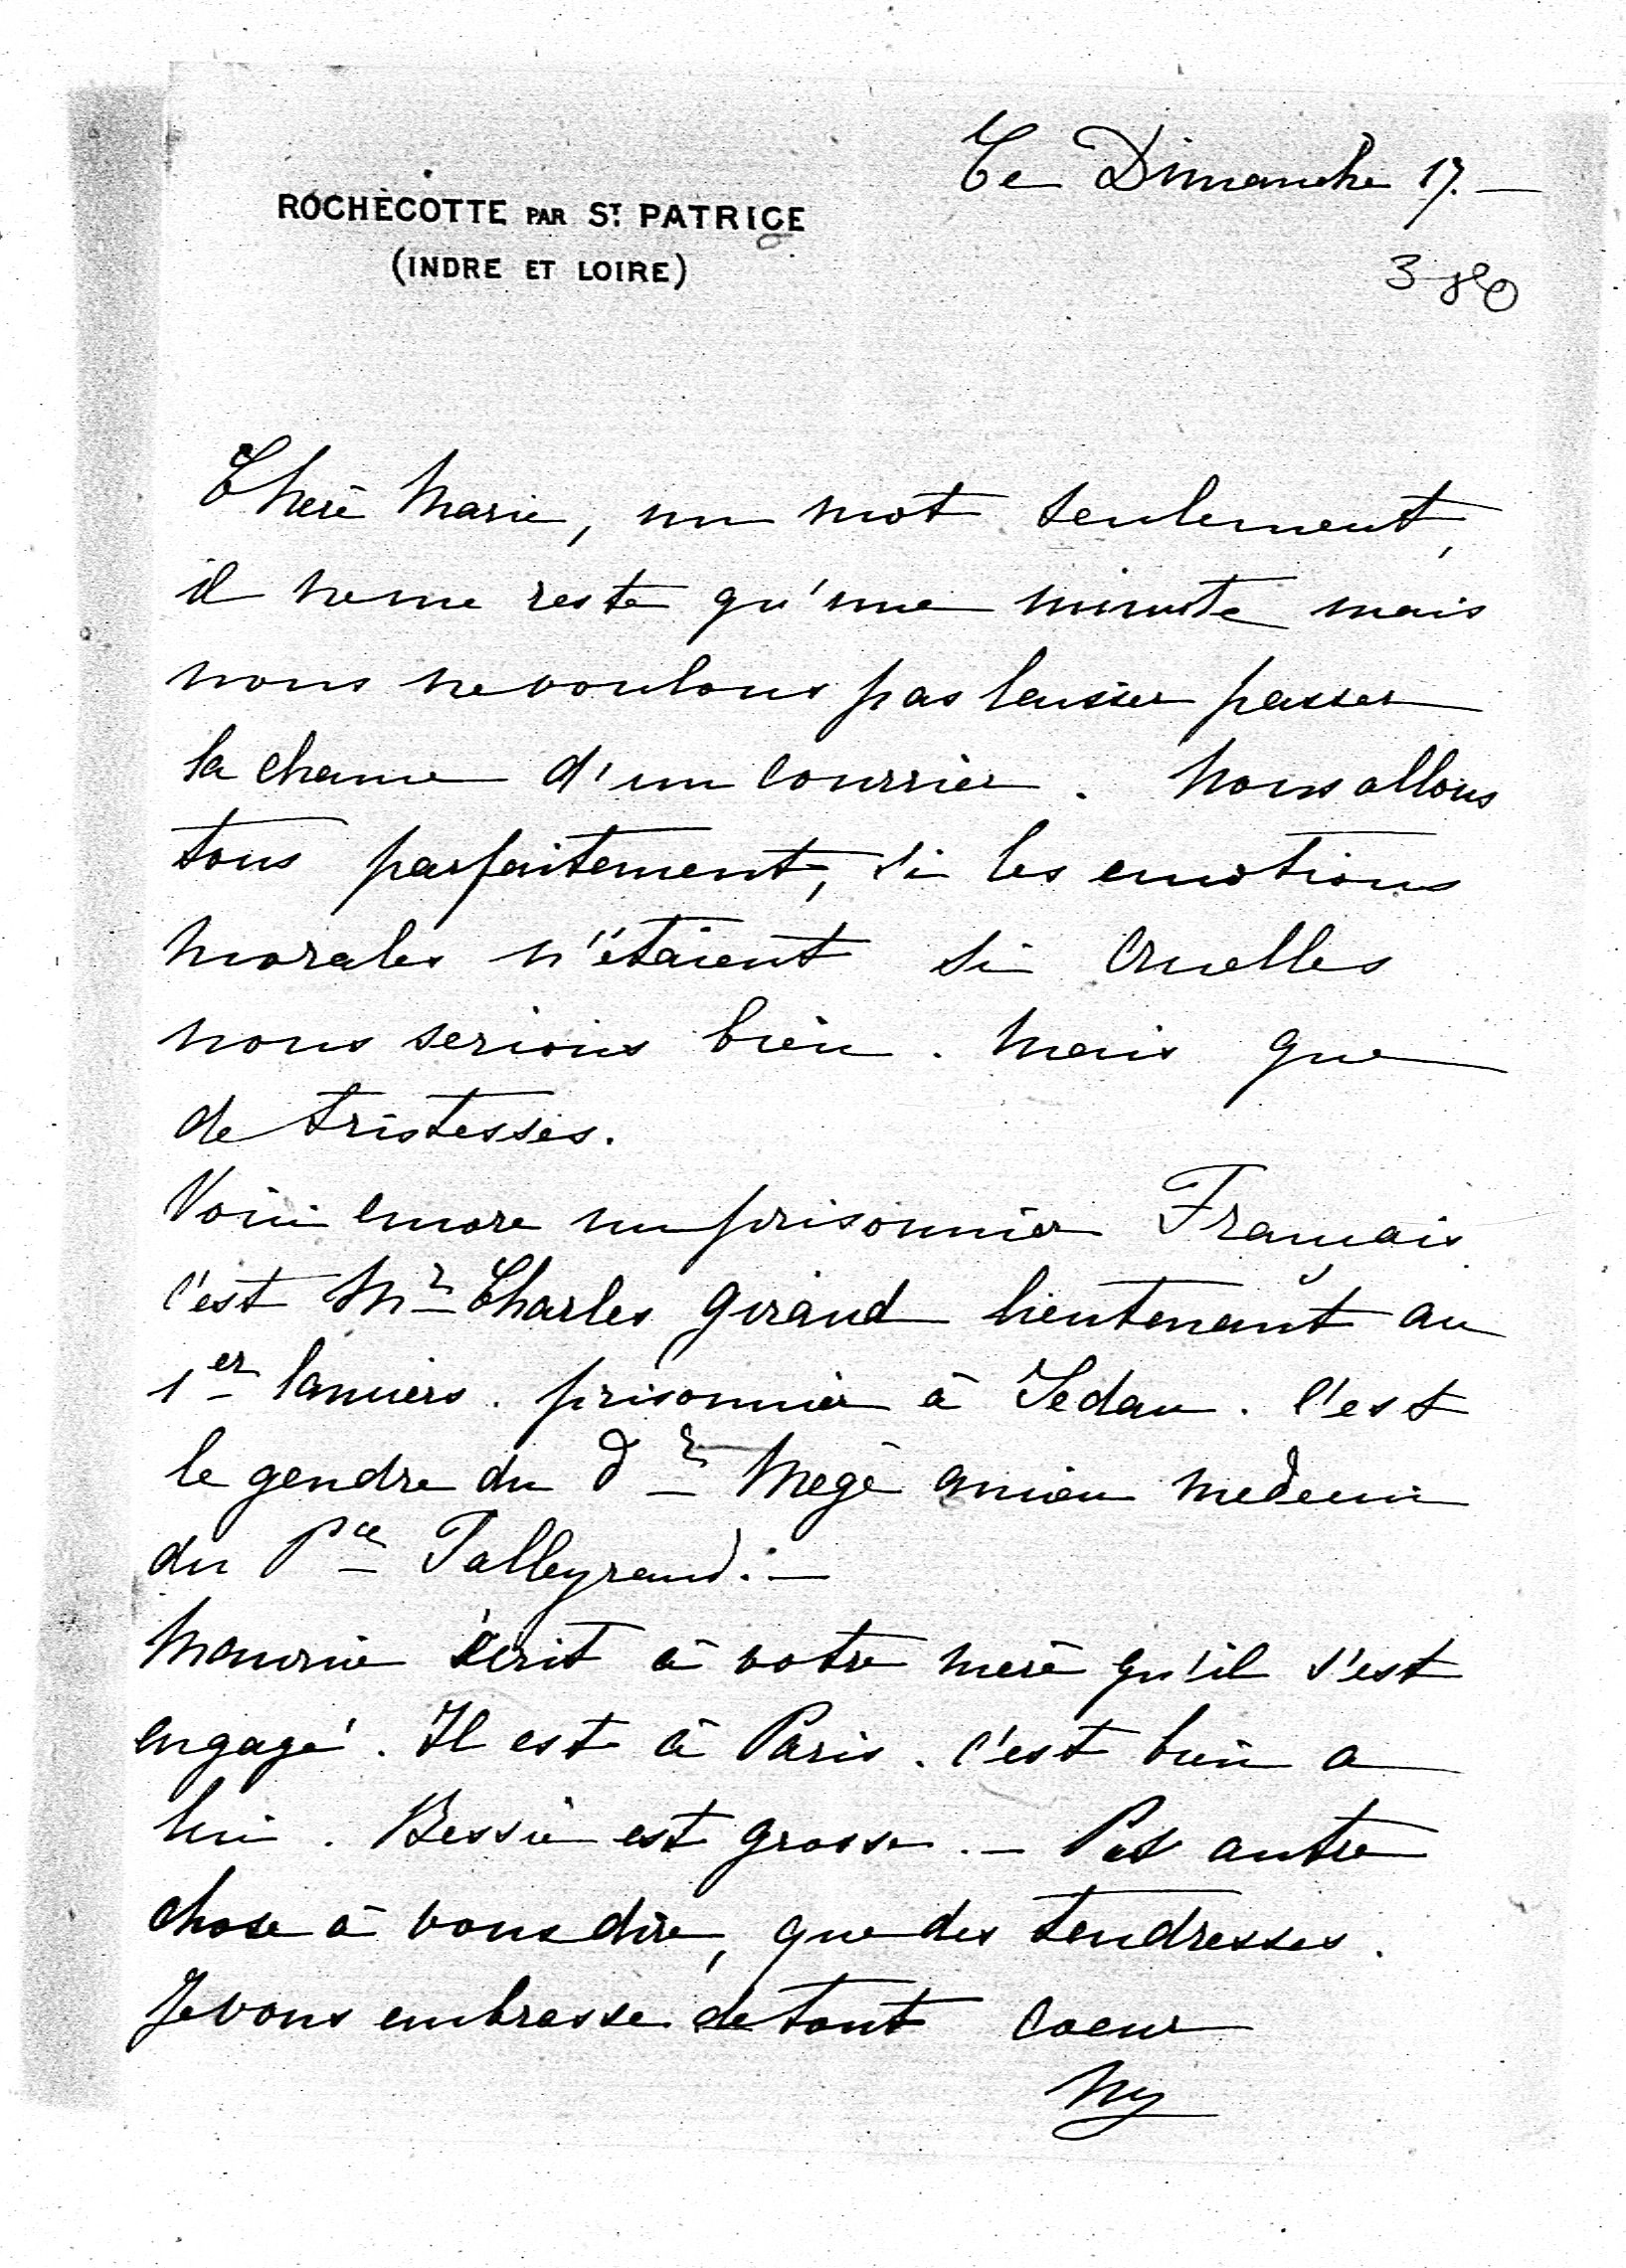 Ce Dimanche 17. —
ROCHECOTTE PAR ST PATRICE
(INDRE ET LOIRE)
380
Chère Marie, un mot seulement,
il ne me reste qu'une minute mais
nous ne voulons pas laisser passer
la chance d'un courrier. Nous allons
tous parfaitement, si les emotions
morales n'étaient si cruelles
nous serions bien. Mais que
de tristesses.
Voici encore un prisonnier Français
c'est Mr Charles Giraud lieutenant au
1er lanciers. prisonnier à Sedan. C'est
le gendre du dr Megé ancien medecin
du Pce Talleyrand. —
Maurice écrit à votre mère qu'il s'est
engagé. Il est à Paris. C'est bien a
lui. Bessie est grosse. — Pas autre
chose à vous dire, que des tendresses.
Je vous embrasse de tout coeur